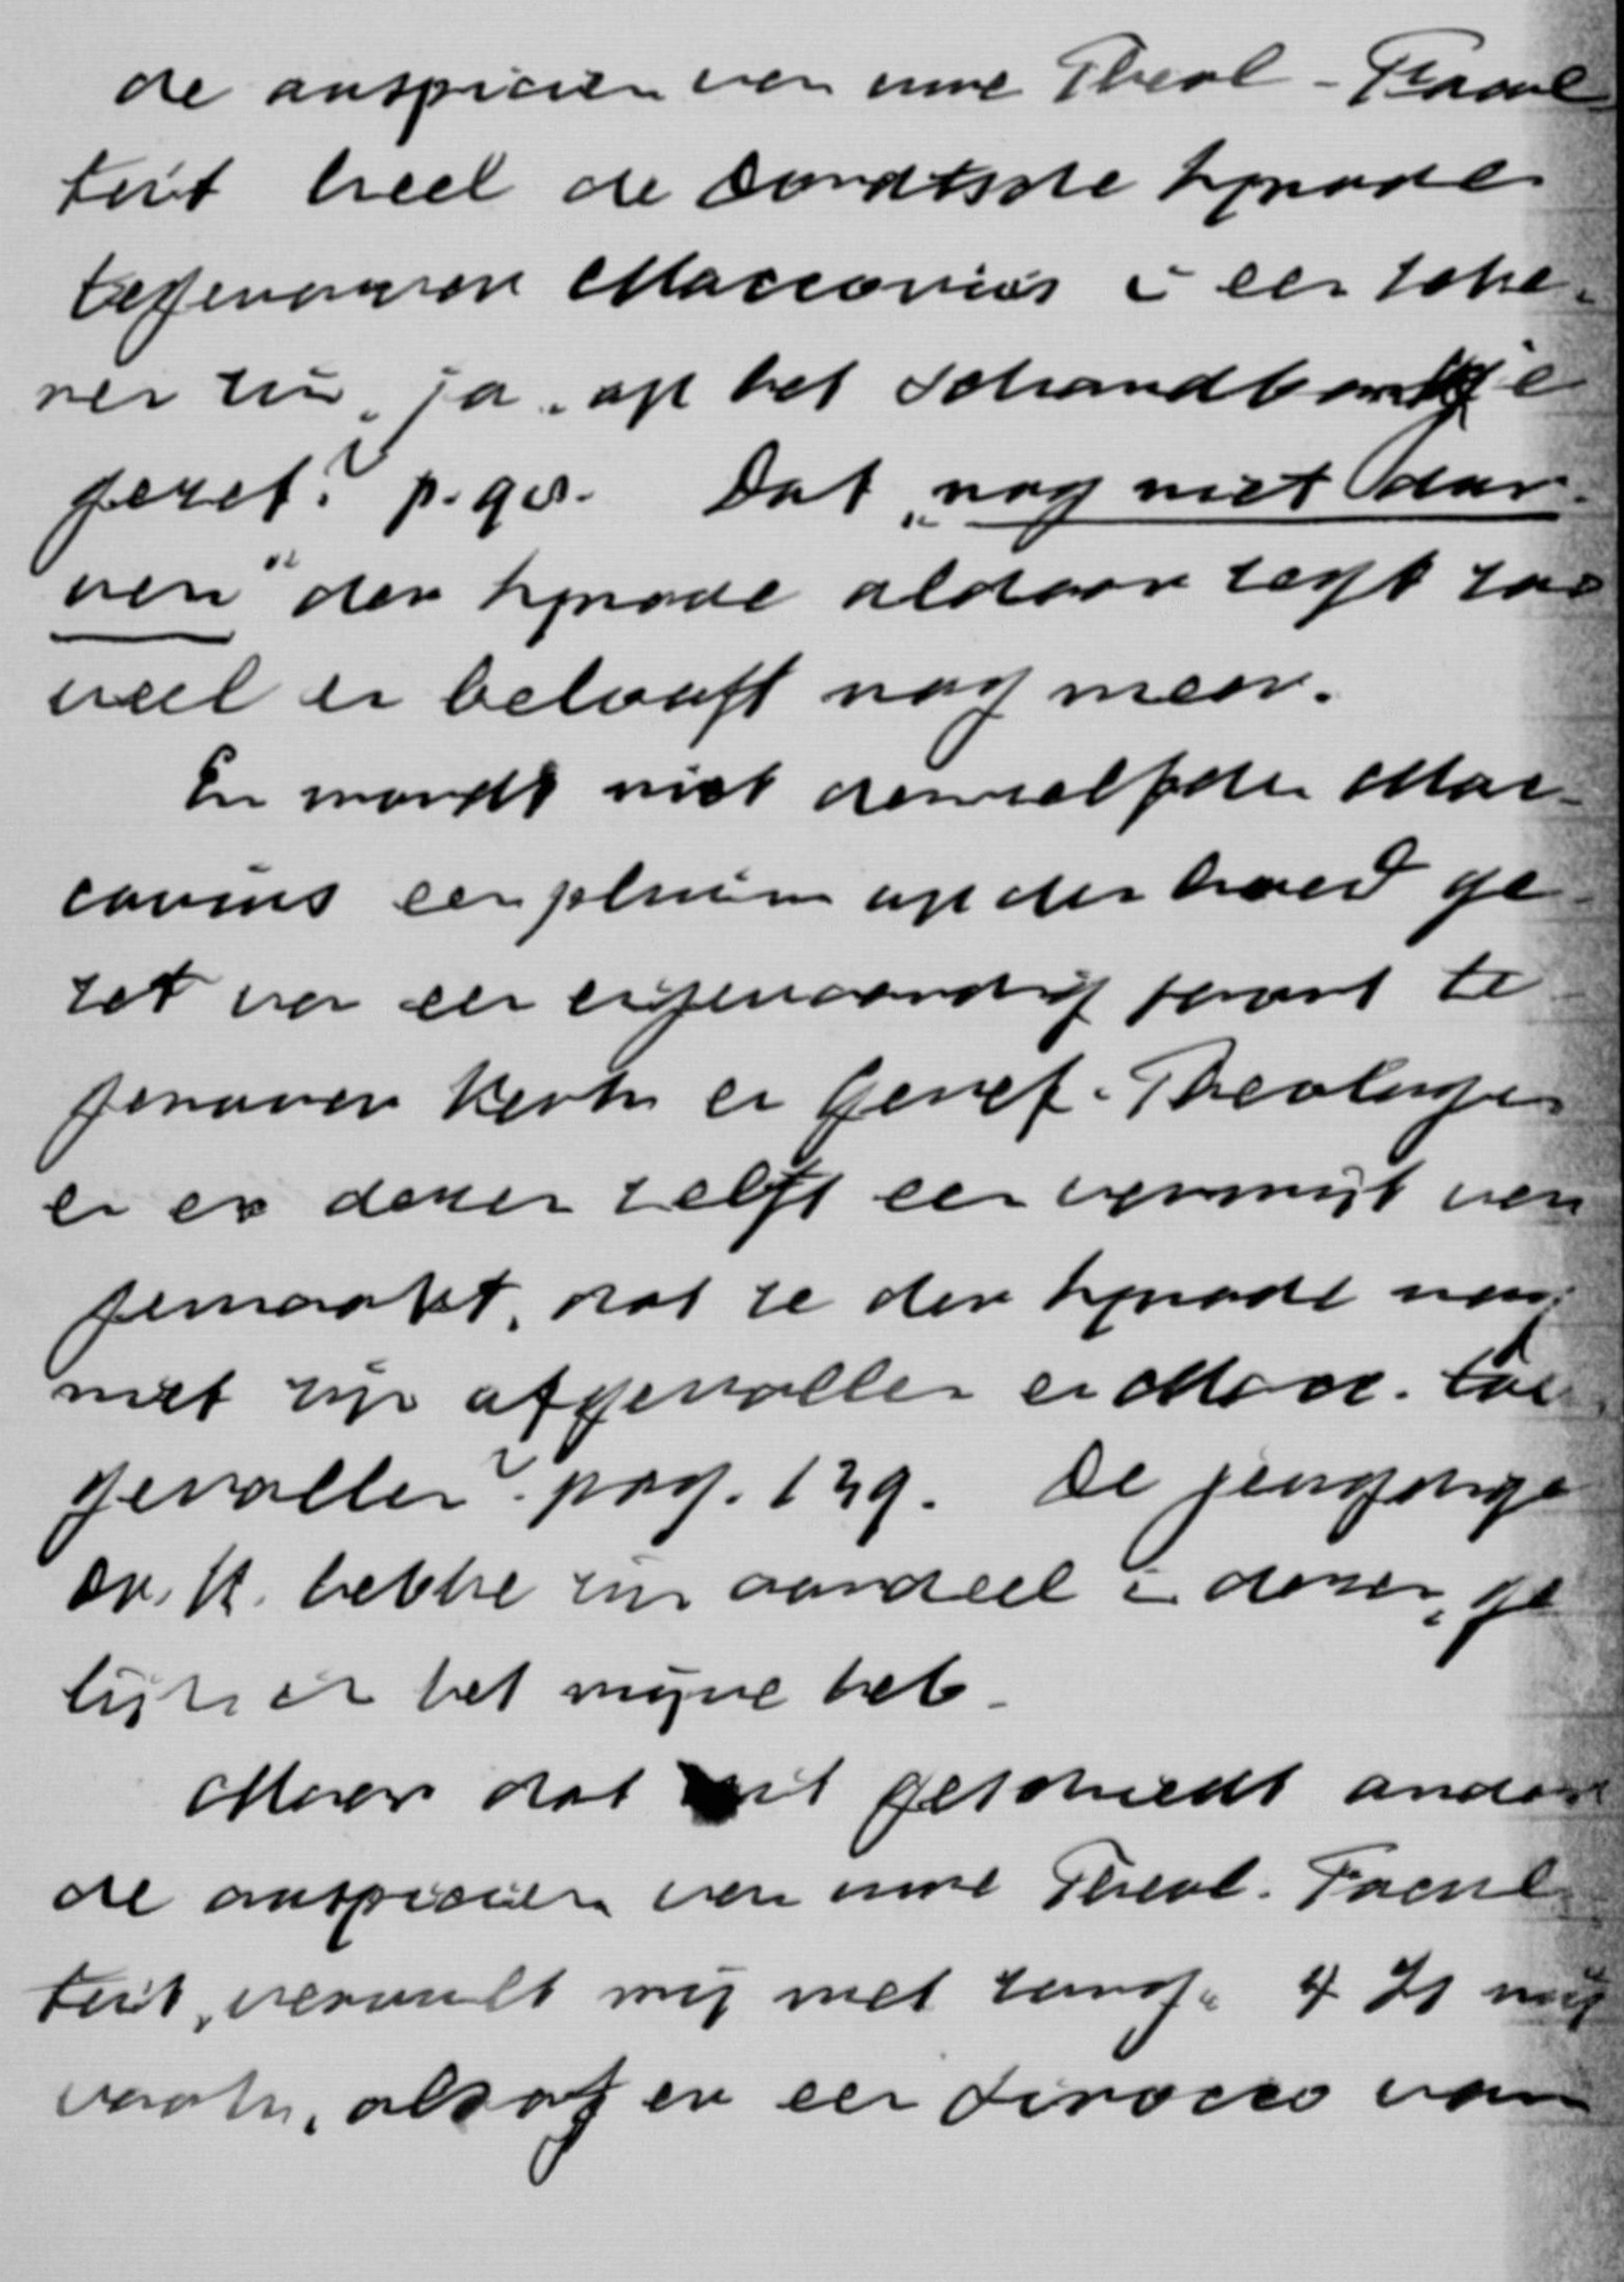 de auspiciën van onze Theol-Facul
teit heel de Dordtsche Synode
tegenover Maccovius in een zeke-
ren zin, ja, op het schandbankje
gezet? p. 90. Dat "nog niet dur-
ven" der Synode aldaar zegt zoo
veel en belooft nog meer.
En wordt niet denzelfden Mac-
covius een pluim op den hoed ge-
zet van een eigenaardig soort te
genover Kerk en Geref. Theologie
en er dezen zelfs een verwijt van
gemaakt, dat ze der Synode nog
niet zijn afgevallen en Macc. toe
gevallen? pag. 139. De jeugdige
Dr. K. hebbe zijn aandeel in dezen, ge
lijk ik het mijne heb.
Maar dat dit geschiedt onder
de auspiciën van onze Theol. Facul
teit, vervult mij met zorg. 't Is mij
vaak, alsof er een Sirocco van